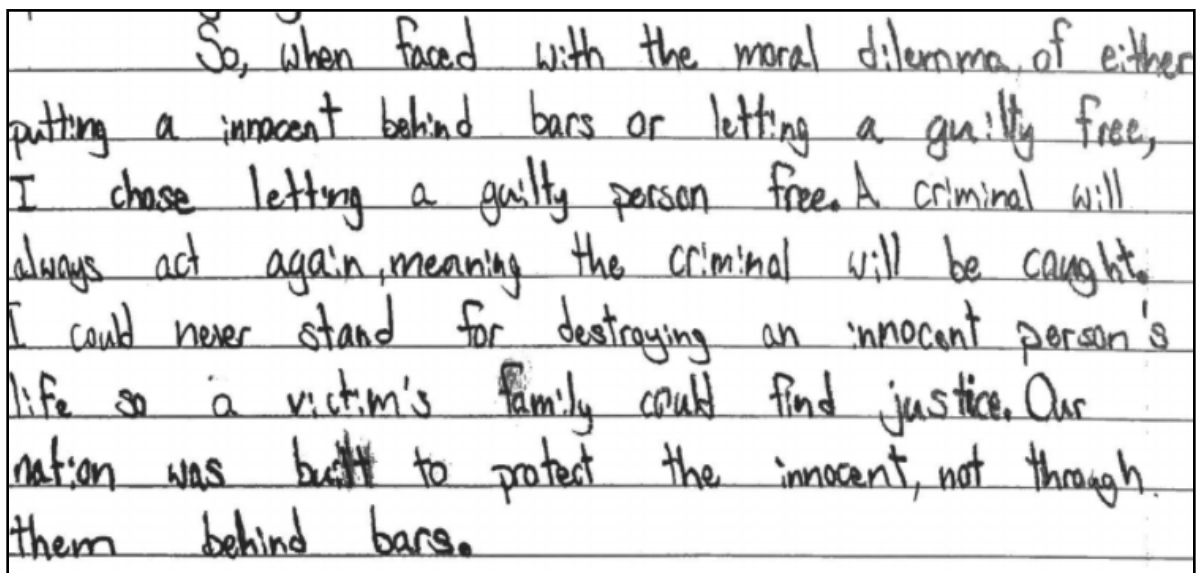 So, when faced with the moral dilemma, of either
putting a innocent behind bars or letting a guilty free,
I chose letting a guilty person free. A criminal will
always act again, meaning the criminal will be caught.
I could never stand for destroying an innocent person's
life so a victim's family could find justice. Our
nation was built to protect the innocent, not through
them behind bars.